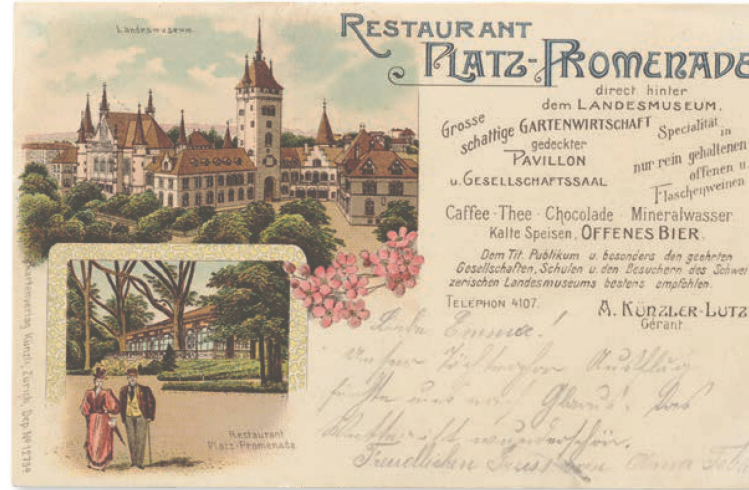 Landesmuseum.
RESTAURANT
PLATZ-PROMENADE
direct hinter
dem LANDESMUSEUM.
Grosse
schattige GARTENWIRTSCHAFT
gedeckter
PAVILLON
u. GESELLSCHAFTSSAAL
Specialität
in
nur rein gehaltenen
offenen u.
Flaschenweinen.
Caffee · Thee · Chocolade · Mineralwasser
Kalte Speisen, OFFENES BIER.
Dem Tit. Publikum u. besonders den geehrten
Gesellschaften, Schulen u. den Besuchern des Schwei-
zerischen Landesmuseums bestens empfohlen.
TELEPHON 4107.
A. KÜNZLER-LUTZ
Gérant.
Restaurant
Platz-Promenade.
Kartenverlag Künzli, Zürich, Dep. No
Liebe Emma!
Ausflug
uns nach Glarus. Das
ist wunderschön.
Freundlichen Gruss von Anna